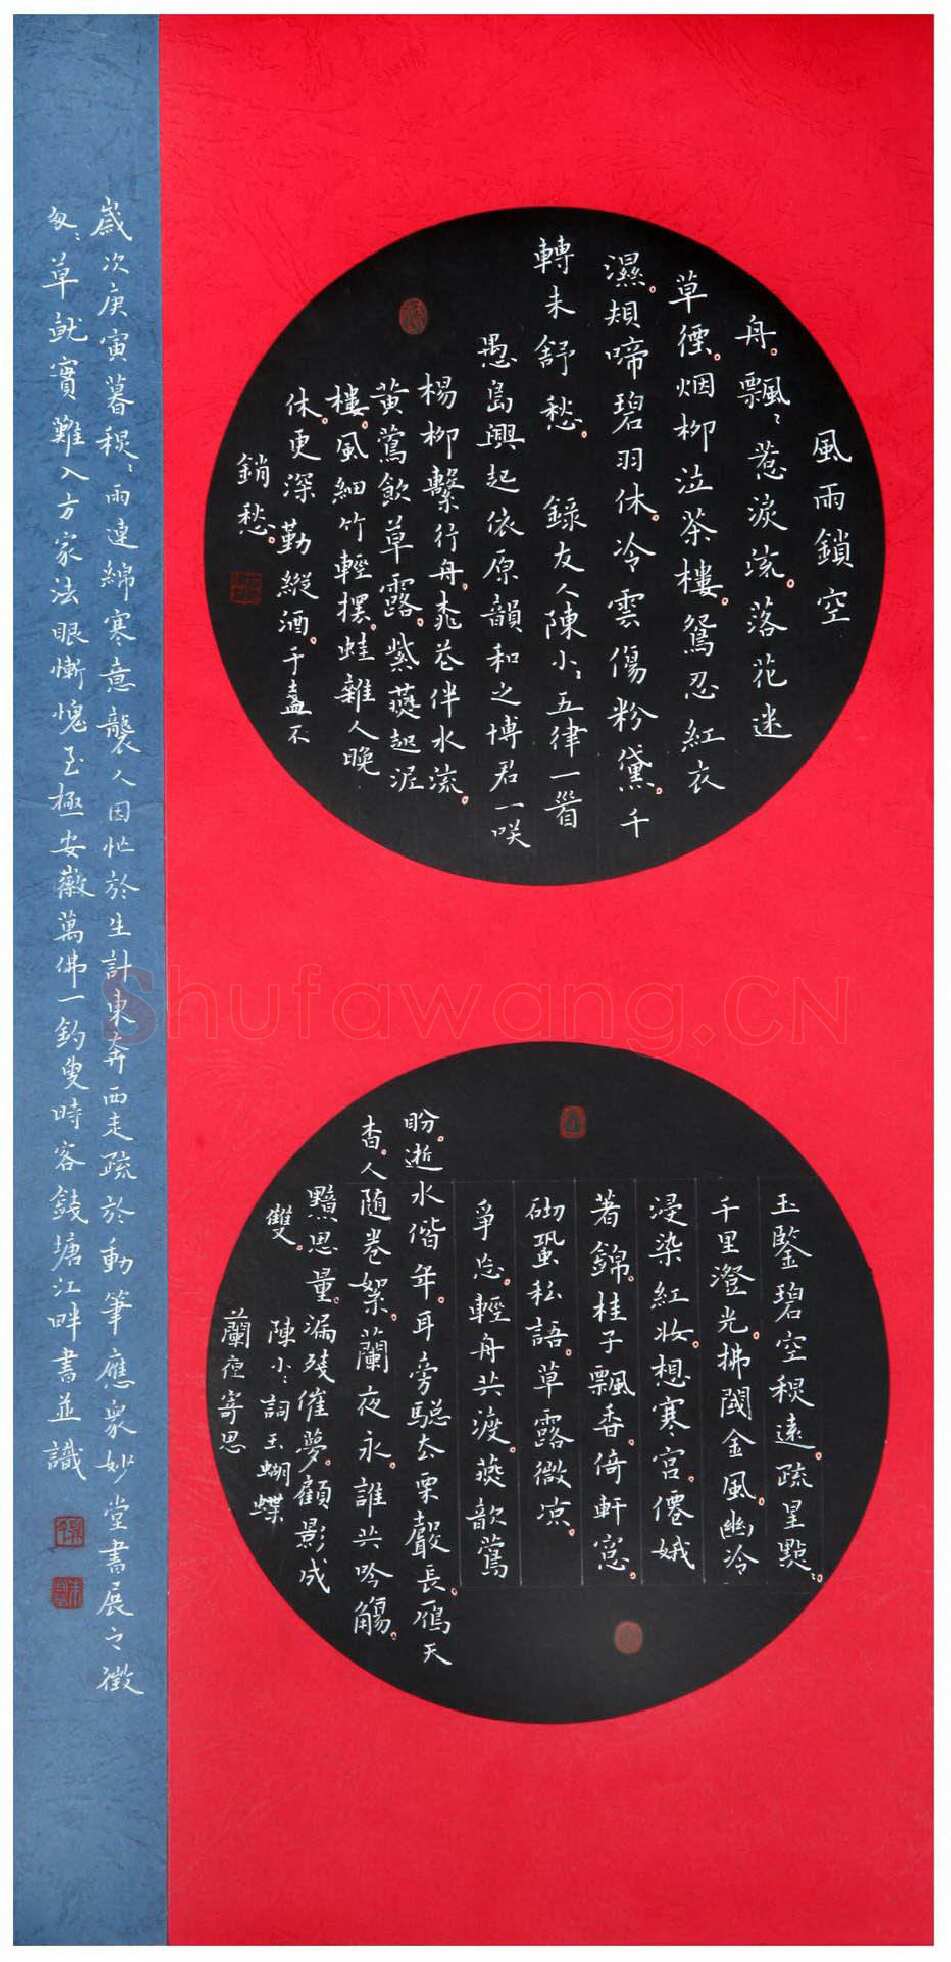 風雨鎖空
舟飄〻惹淚流落花迷
草徑烟柳泣茶樓鴛忍紅衣
濕頰啼碧羽休冷雲傷粉黛千
轉未舒愁 錄友人陳小〻五律一首
愚島興起依原韻和之博君一咲
楊柳繫行舟花伴水流
黃鶯飲草露紫燕起泥
樓風細竹輕擺蛙雜人晚
休更深勤縱酒千盞不
銷愁
玉鑒碧空稷遠疏星點〻
千里澄光拂闼金風幽冷
浸染紅妝想寒宮僊娥
著錦桂子飄香倚軒窓
砌蛩私語草露微涼
爭忘輕舟共渡燕歆鶯
盼逝水偕年耳旁聽去栗聲長雁天
杳人随卷絮蘭夜永誰共吟觴
黯思量漏殘催夢顧影成
雙 陳小〻詞玉蝴蝶
蘭夜寄思
歲次庚寅暮稷〻雨連綿寒意襲人因忙於生計東奔西走疏於動筆應衆妙堂書展之徵
匆〻草就實難入方家法眼慚愧至極安徽萬佛一釣叟時客錢塘江畔書並識
Shufawang.CN